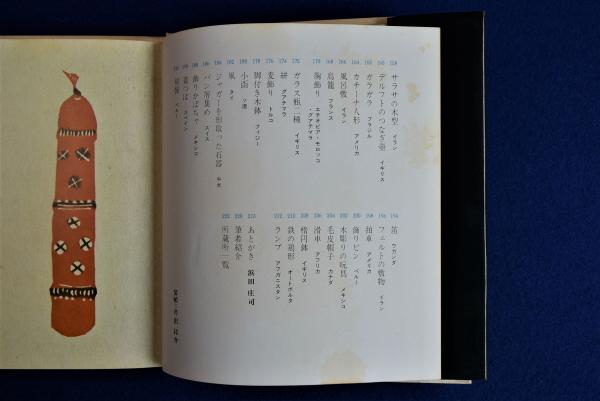 158 サラサの木型 イラン
160 デルフトのつなぎ壺 イギリス
162 ガラガラ ブラジル
164 カチーナ人形 アメリカ
166 風呂敷 イラン
168 鳥籠 フランス
170 胸飾り エチオピア・モロッコ・グアテマラ
172 ガラス瓶二種 イギリス
174 絣 グアテマラ
176 麦飾り トルコ
178 脚付き木鉢 フィジー
180 小函 ソ連
182 凧 タイ
184 ジャガーを形取った石器 中米
186 パン屑集め スイス
188 飾りかぼちゃ メキシコ
190 蓋つぼ スペイン
ペルー
194 笛 ウガンダ
196 フェルトの敷物 イラン
198 拍車 アメリカ
200 飾りピン ペルー
202 木彫りの玩具 メキシコ
204 毛皮帽子 カナダ
206 滑車 アフリカ
208 楕円鉢 イギリス
210 鉄の鶏形 オートボルタ
212 ランプ アフガニスタン
215 あとがき 浜田庄司
220 筆者紹介
222 所蔵所一覧